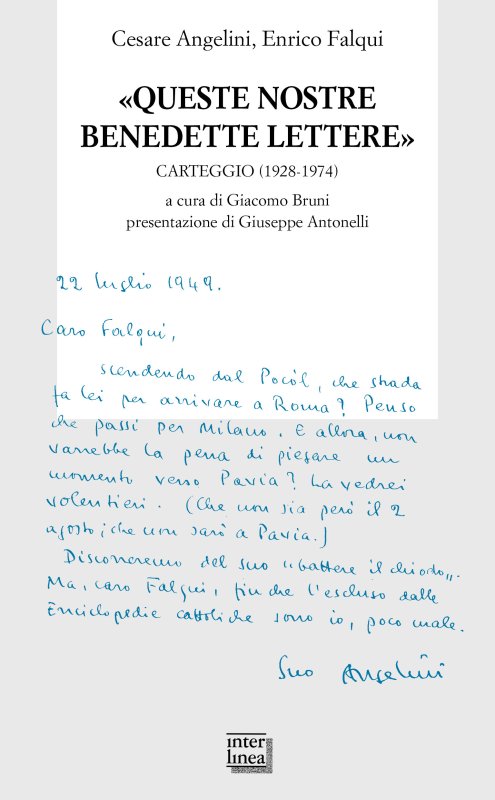 Cesare Angelini, Enrico Falqui
«QUESTE NOSTRE
BENEDETTE LETTERE»
CARTEGGIO (1928-1974)
a cura di Giacomo Bruni
presentazione di Giuseppe Antonelli
22 luglio 1949.
Caro Falqui,
scendendo dal Pocòl, che strada
fa lei per arrivare a Roma? Penso
che passi per Milano. E allora, non
varrebbe la pena di piegare un
momento verso Pavia? La vedrei
volentieri. (Che non sia però il 2
agosto; che non sarò a Pavia.)
Discorreremo del suo "battere il chiodo".
Ma, caro Falqui, finche l'escluso dalle
Enciclopedie cattoliche sono io, poco male.
Suo Angelini
inter
linea